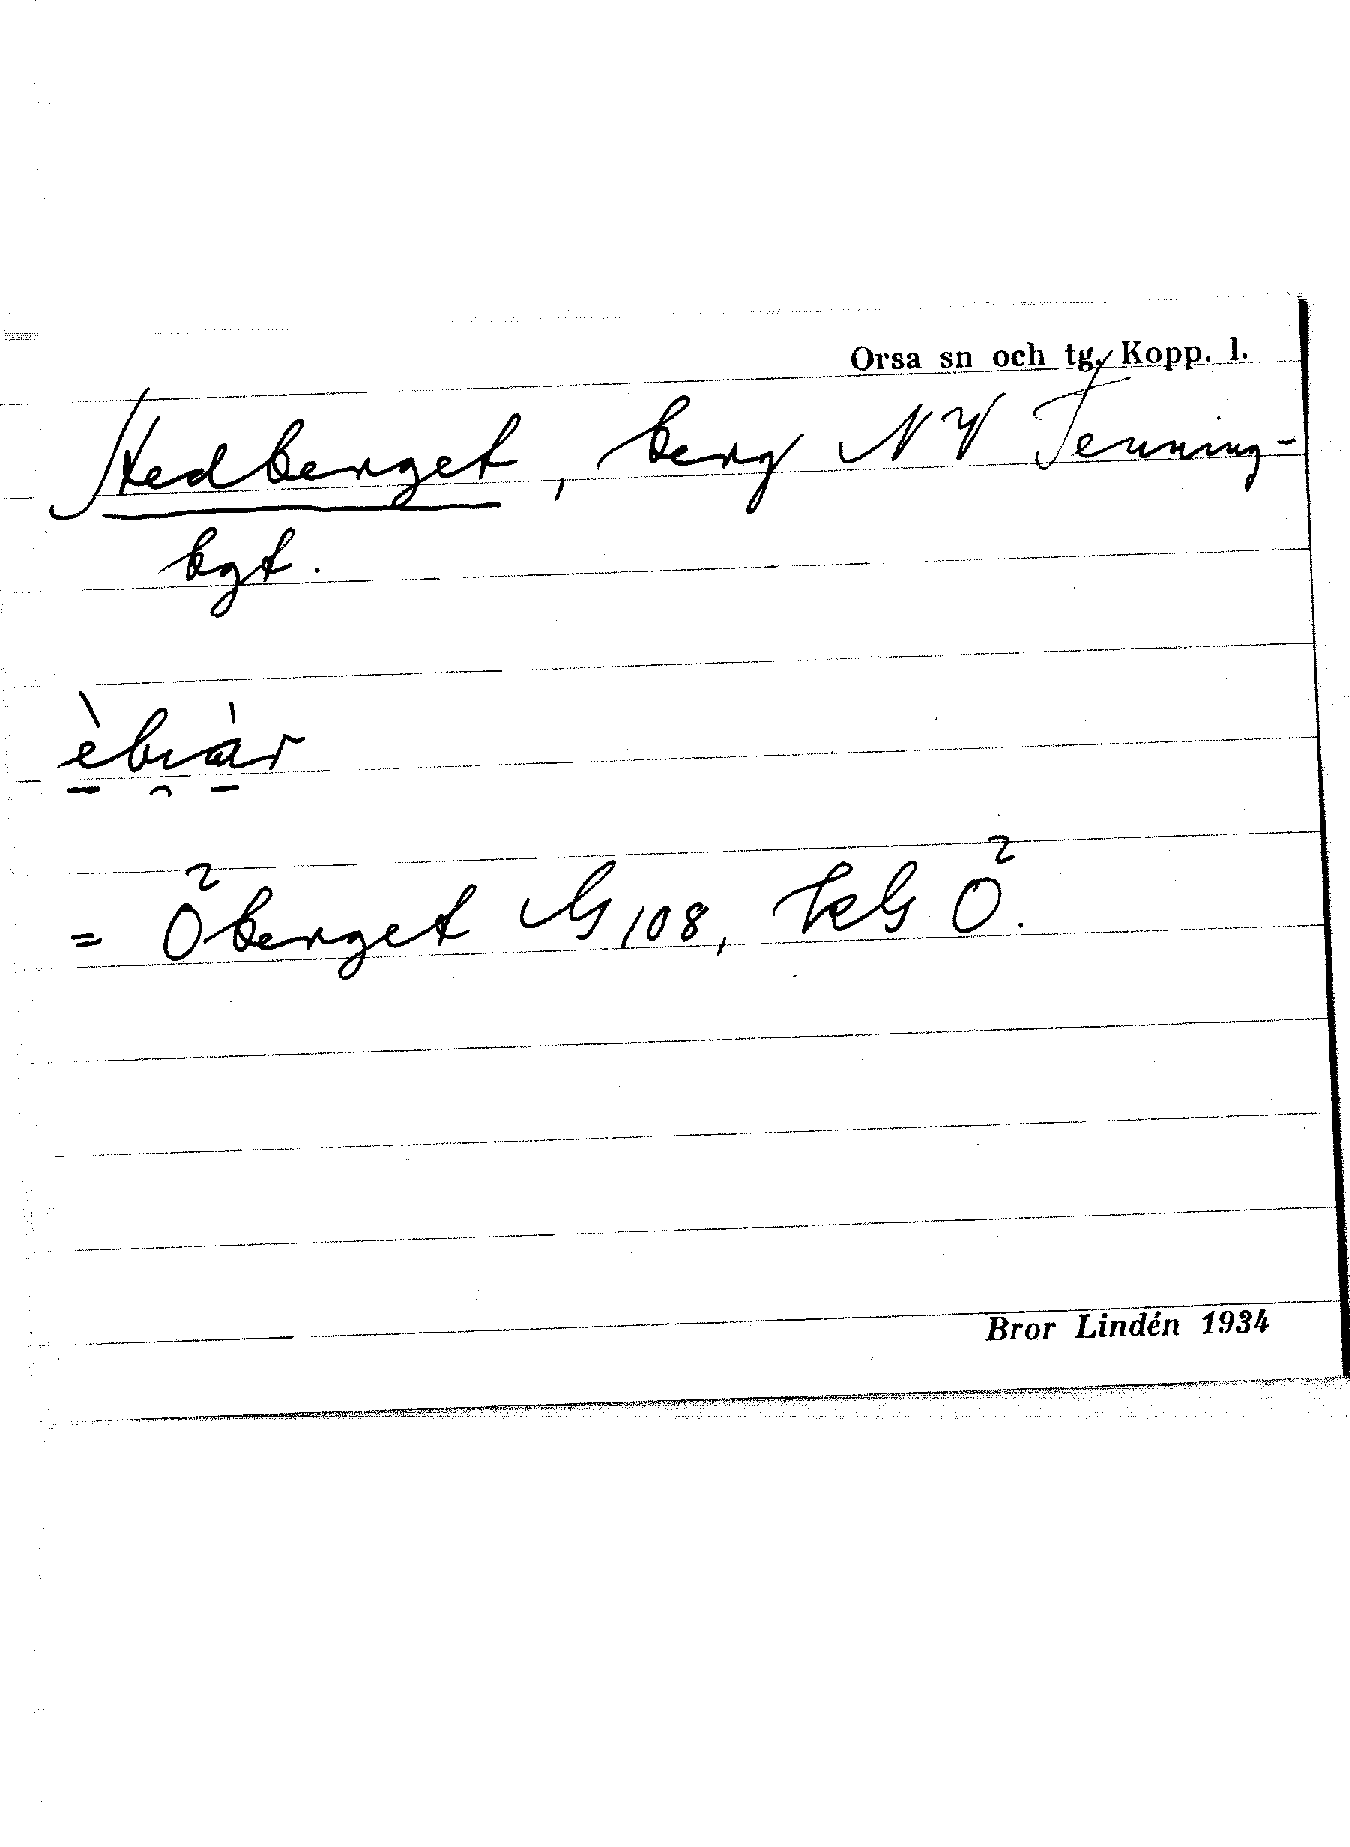 Orsa sn och tg. Kopp. l.
Hedberget, berg NV Tenning-
bgt.
èbiàr
= Öberget G 108, kG Ö.
Bror Lindén 1934